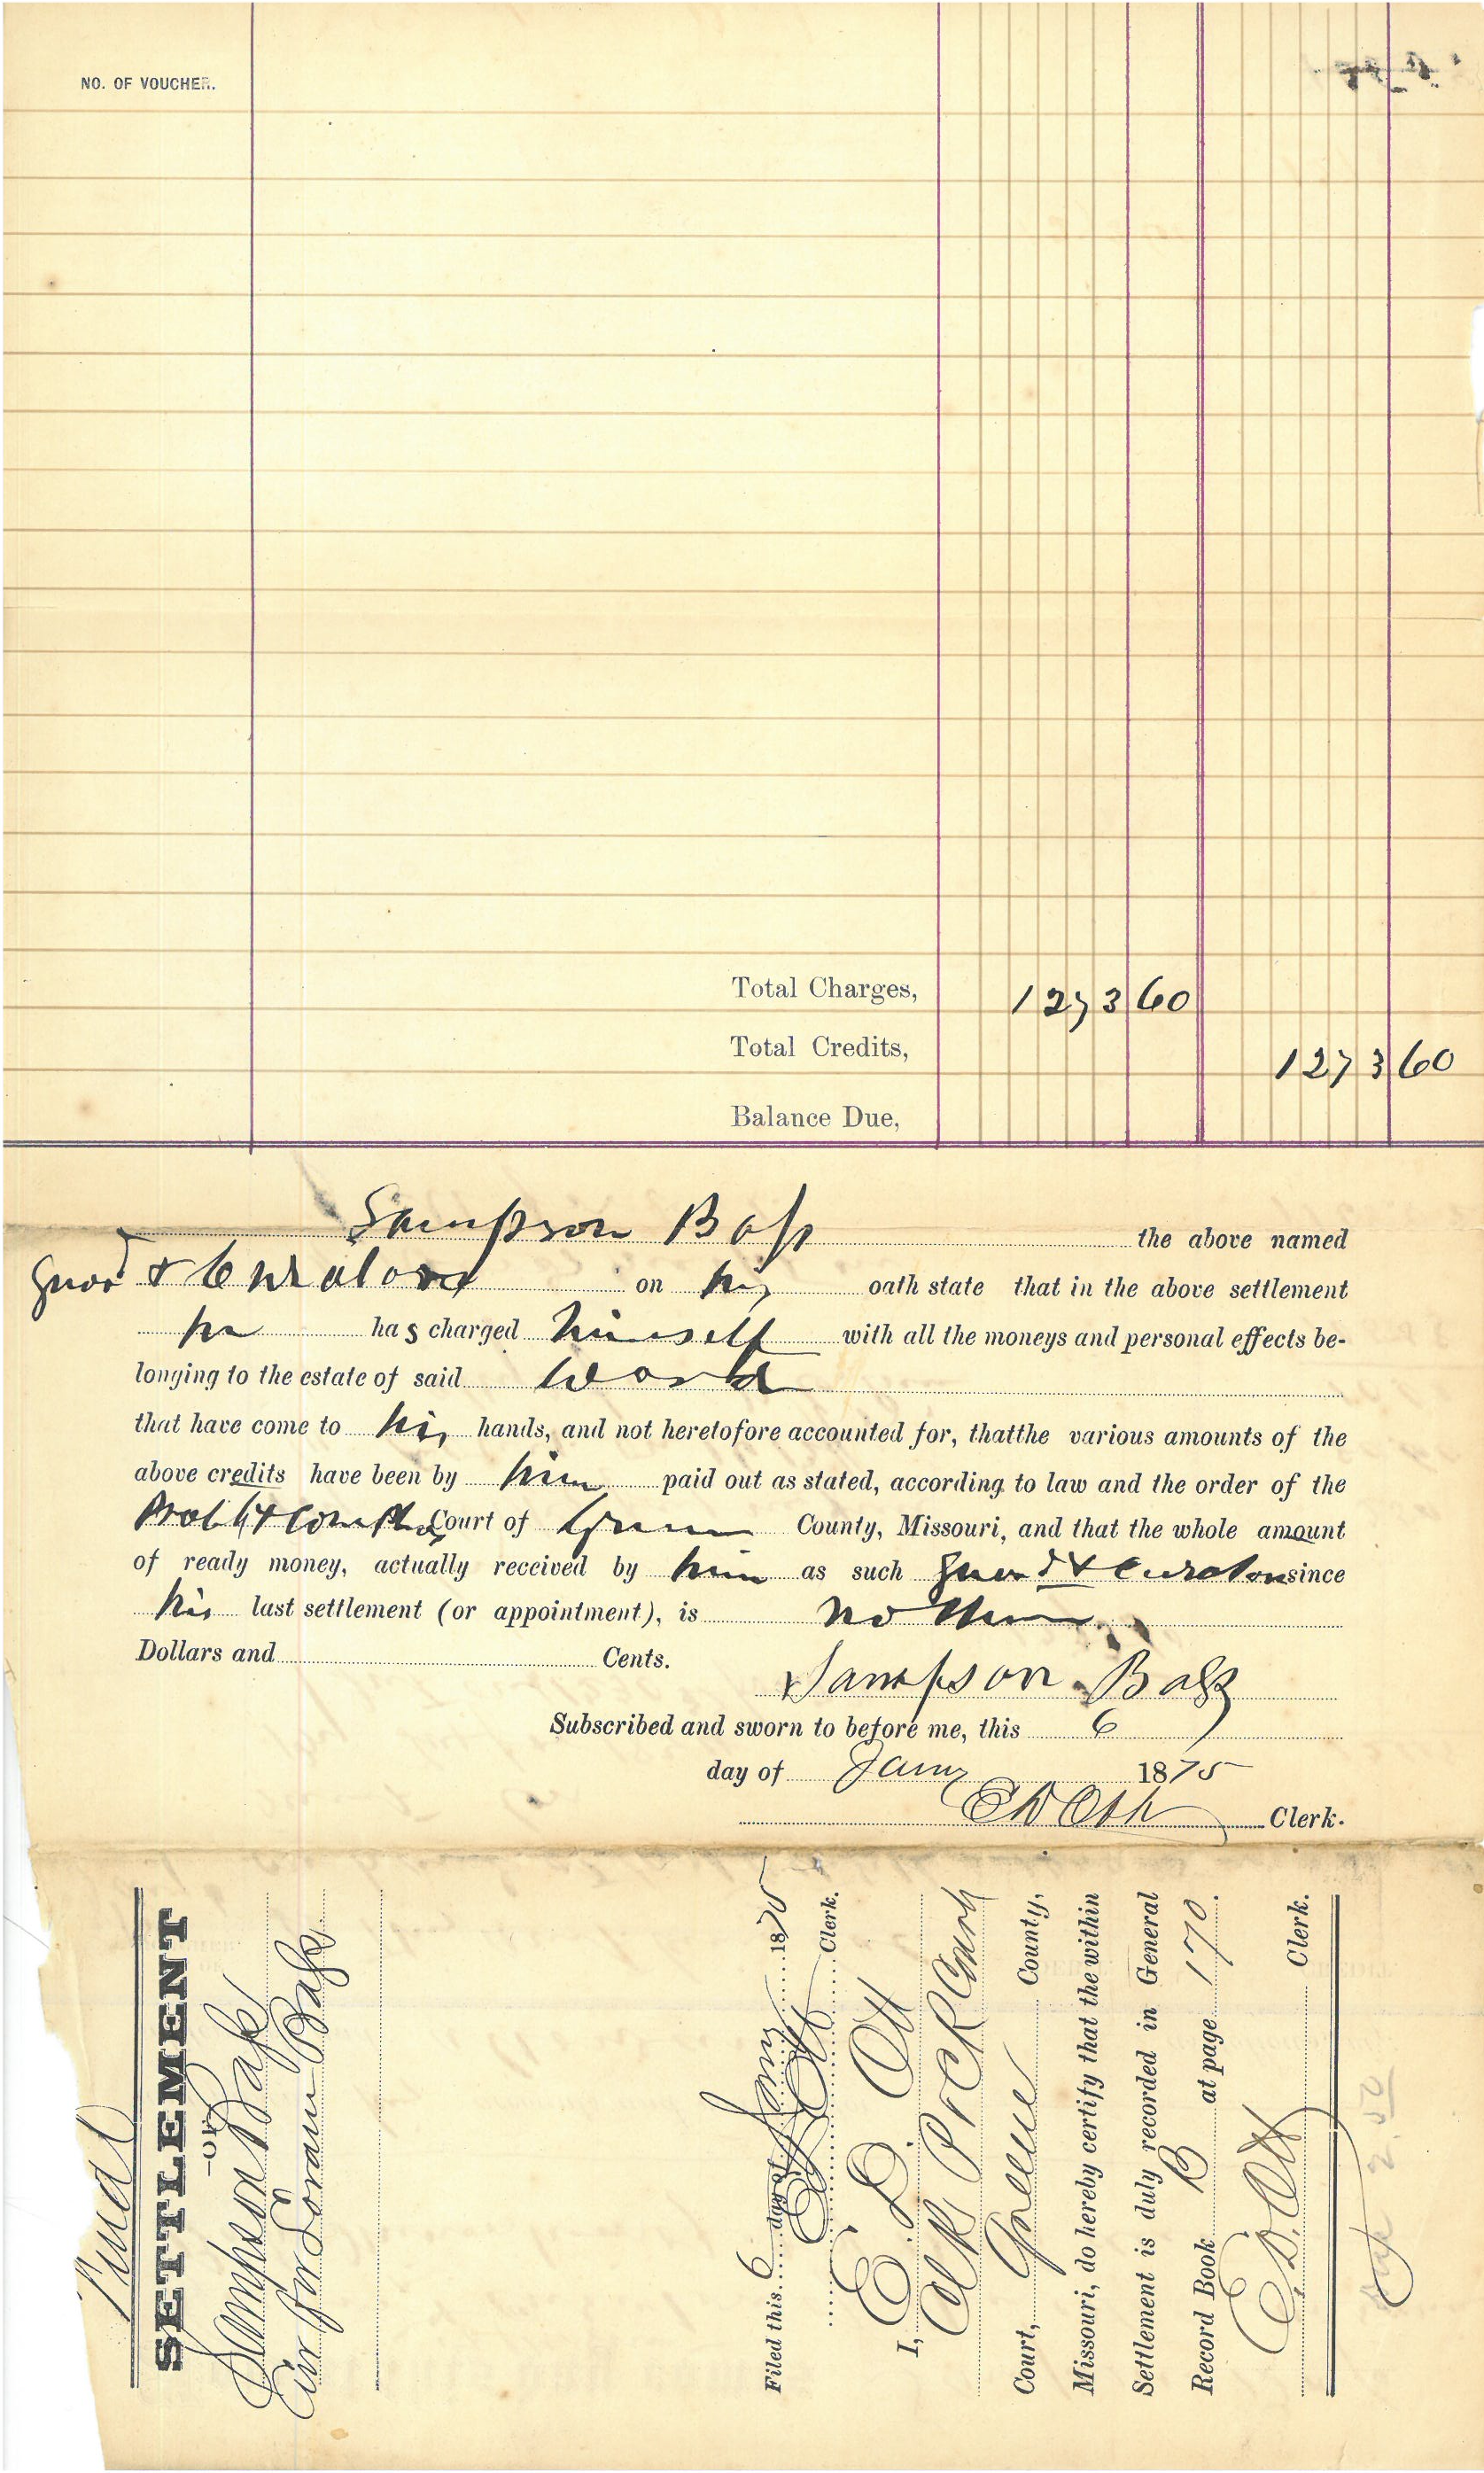 NO. OF VOUCHER.
Total Charges, 1273 60
Total Credits, 1273 60
Balance Due,
Sampson Bass the above named
Guard & Curator on his oath state that in the above settlement
he has charged himself with all the moneys and personal effects be-
longing to the estate of said Ward
that have come to his hands, and not heretofore accounted for, thatthe various amounts of the
above credits have been by him paid out as stated, according to law and the order of the
Prob Court of Greene County, Missouri, and that the whole amount
of ready money, actually received by him as such Guard & Curator since
his last settlement (or appointment), is no
Dollars and Cents.
Sampson Bass
Subscribed and sworn to before me, this 6
day of Jany 1875
E D Ott Clerk.
Final
SETTLEMENT
—OF—
Sampson Bass
Cur for Bass
Filed this 6 day of Jany 1875
E D Ott Clerk.
I, E. D. Ott
Clk P & C R Court
Court, Greene County,
Missouri, do hereby certify that the within
Settlement is duly recorded in General
Record Book B at page 170.
E. D. Ott Clerk.
2.50